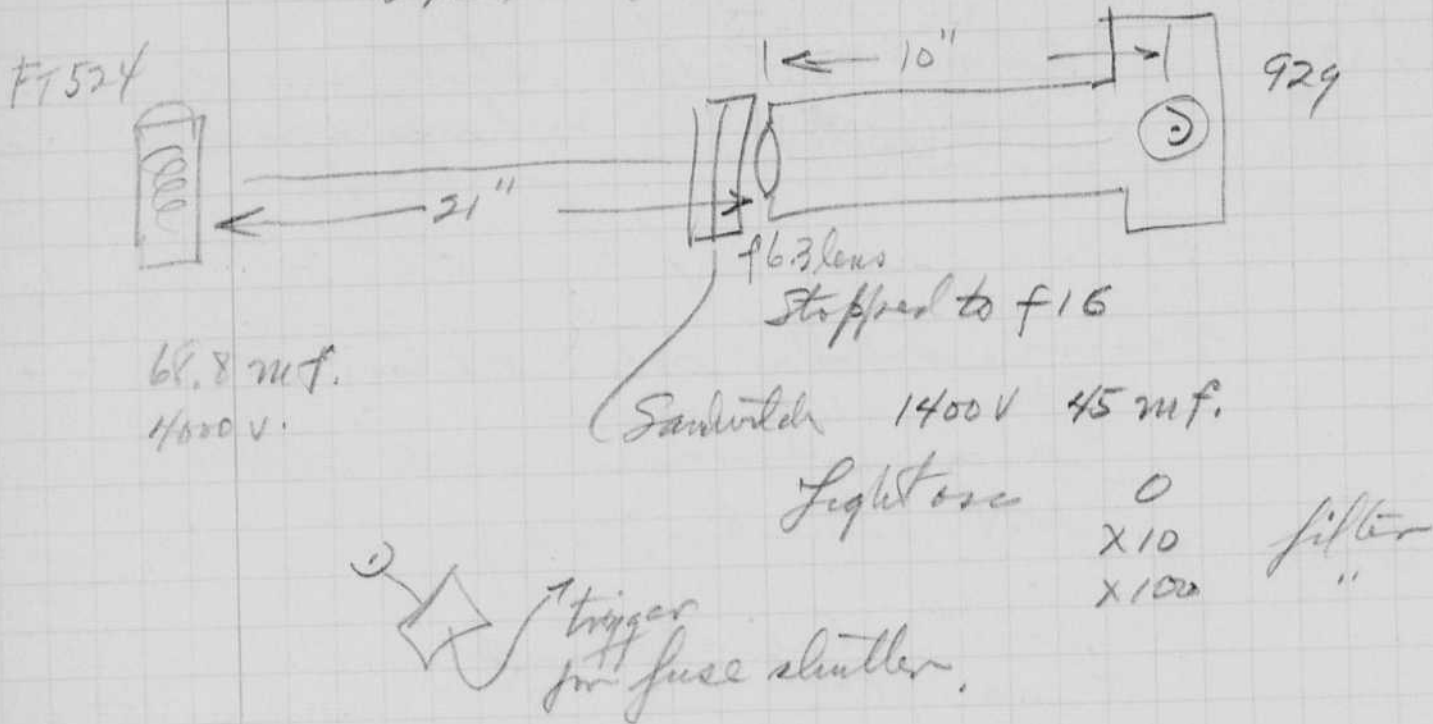 FT524
10"
929
21"
f6.3 lens
Stopped to f16
68.8 mf.
4000 v.
Sandwitch 1400V 45 mf.
Light osc 0
x10 filter
x100 "
trigger
for fuse shutter.